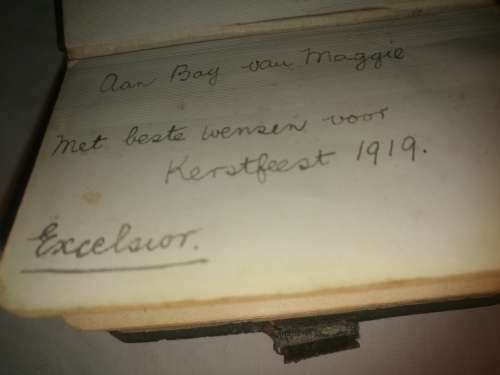 Aan Bay van Maggie
Met beste wensen voor
Kerstfeest 1919.
Excelsior.